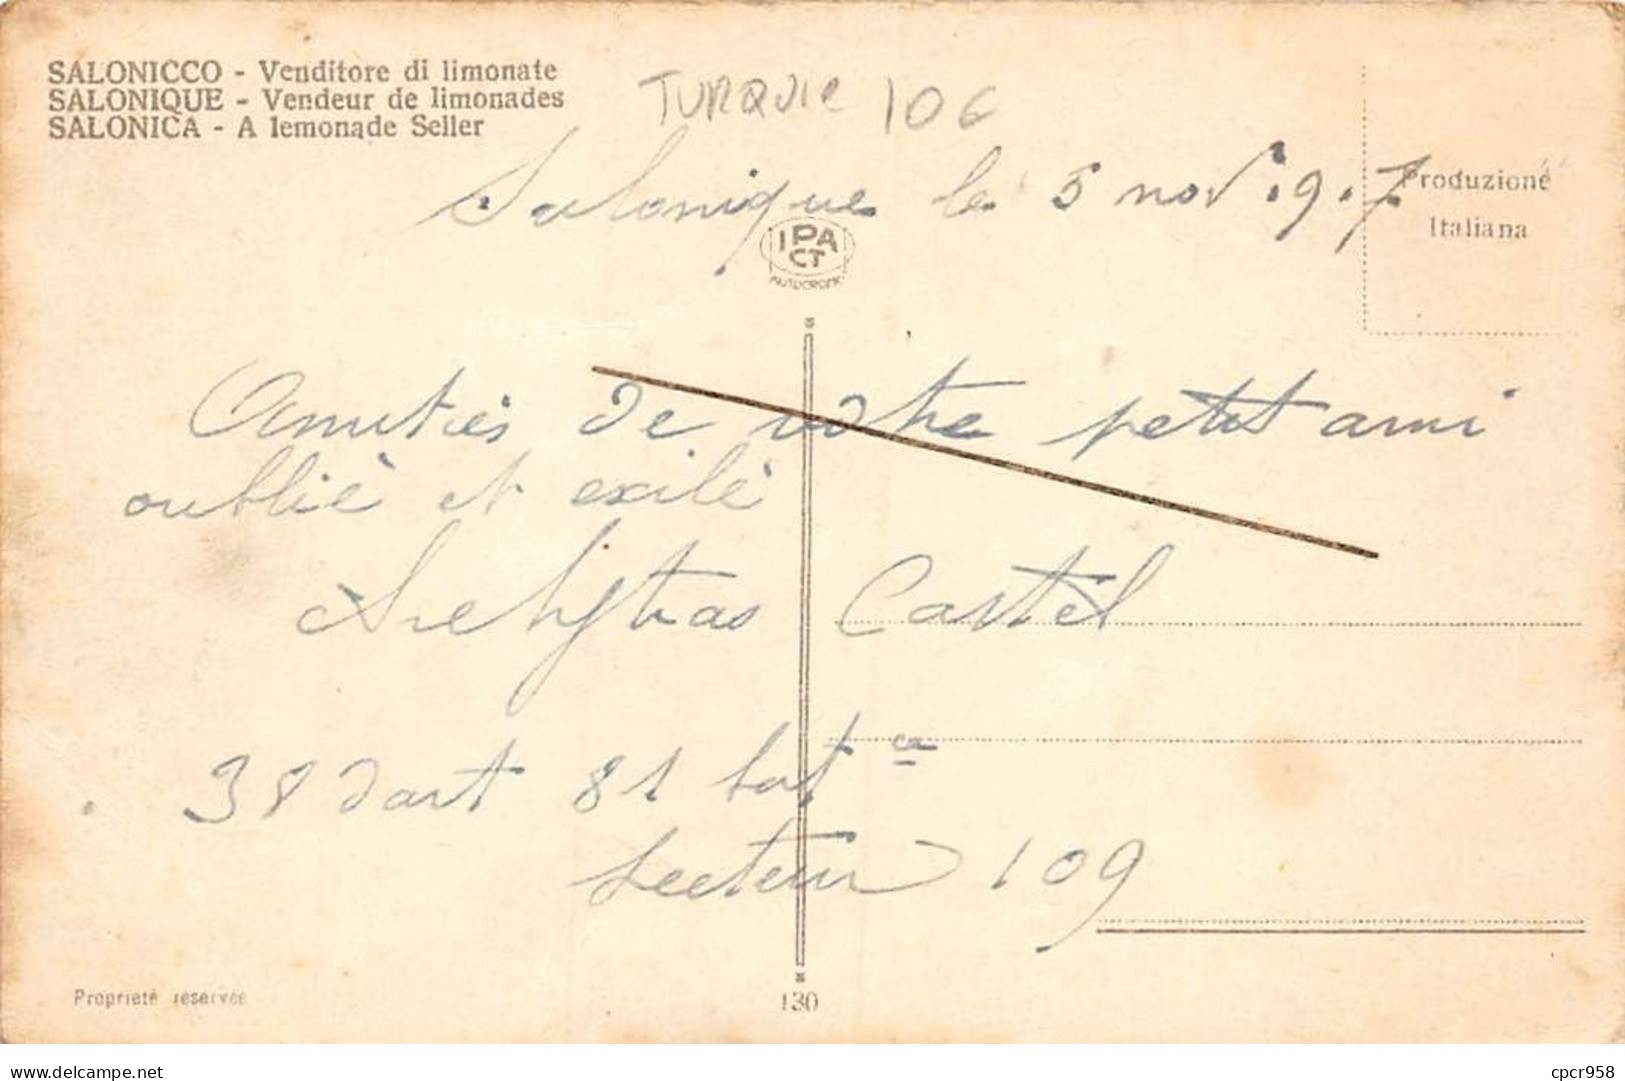 SALONICCO - Venditore di limonate
SALONIQUE - Vendeur de limonades
SALONICA - A lemonade Seller
TURQUIE 10€
Salonique le 5 nov. 9.7
Produzione
Italiana
IPA
CT
AUTOCROM
Amitiés de votre petit ami
oublié et exilé
Castel
38 dart 81 bat ie
Secteur 109
Proprieté reservée
130
delcampe.net
cpcr958